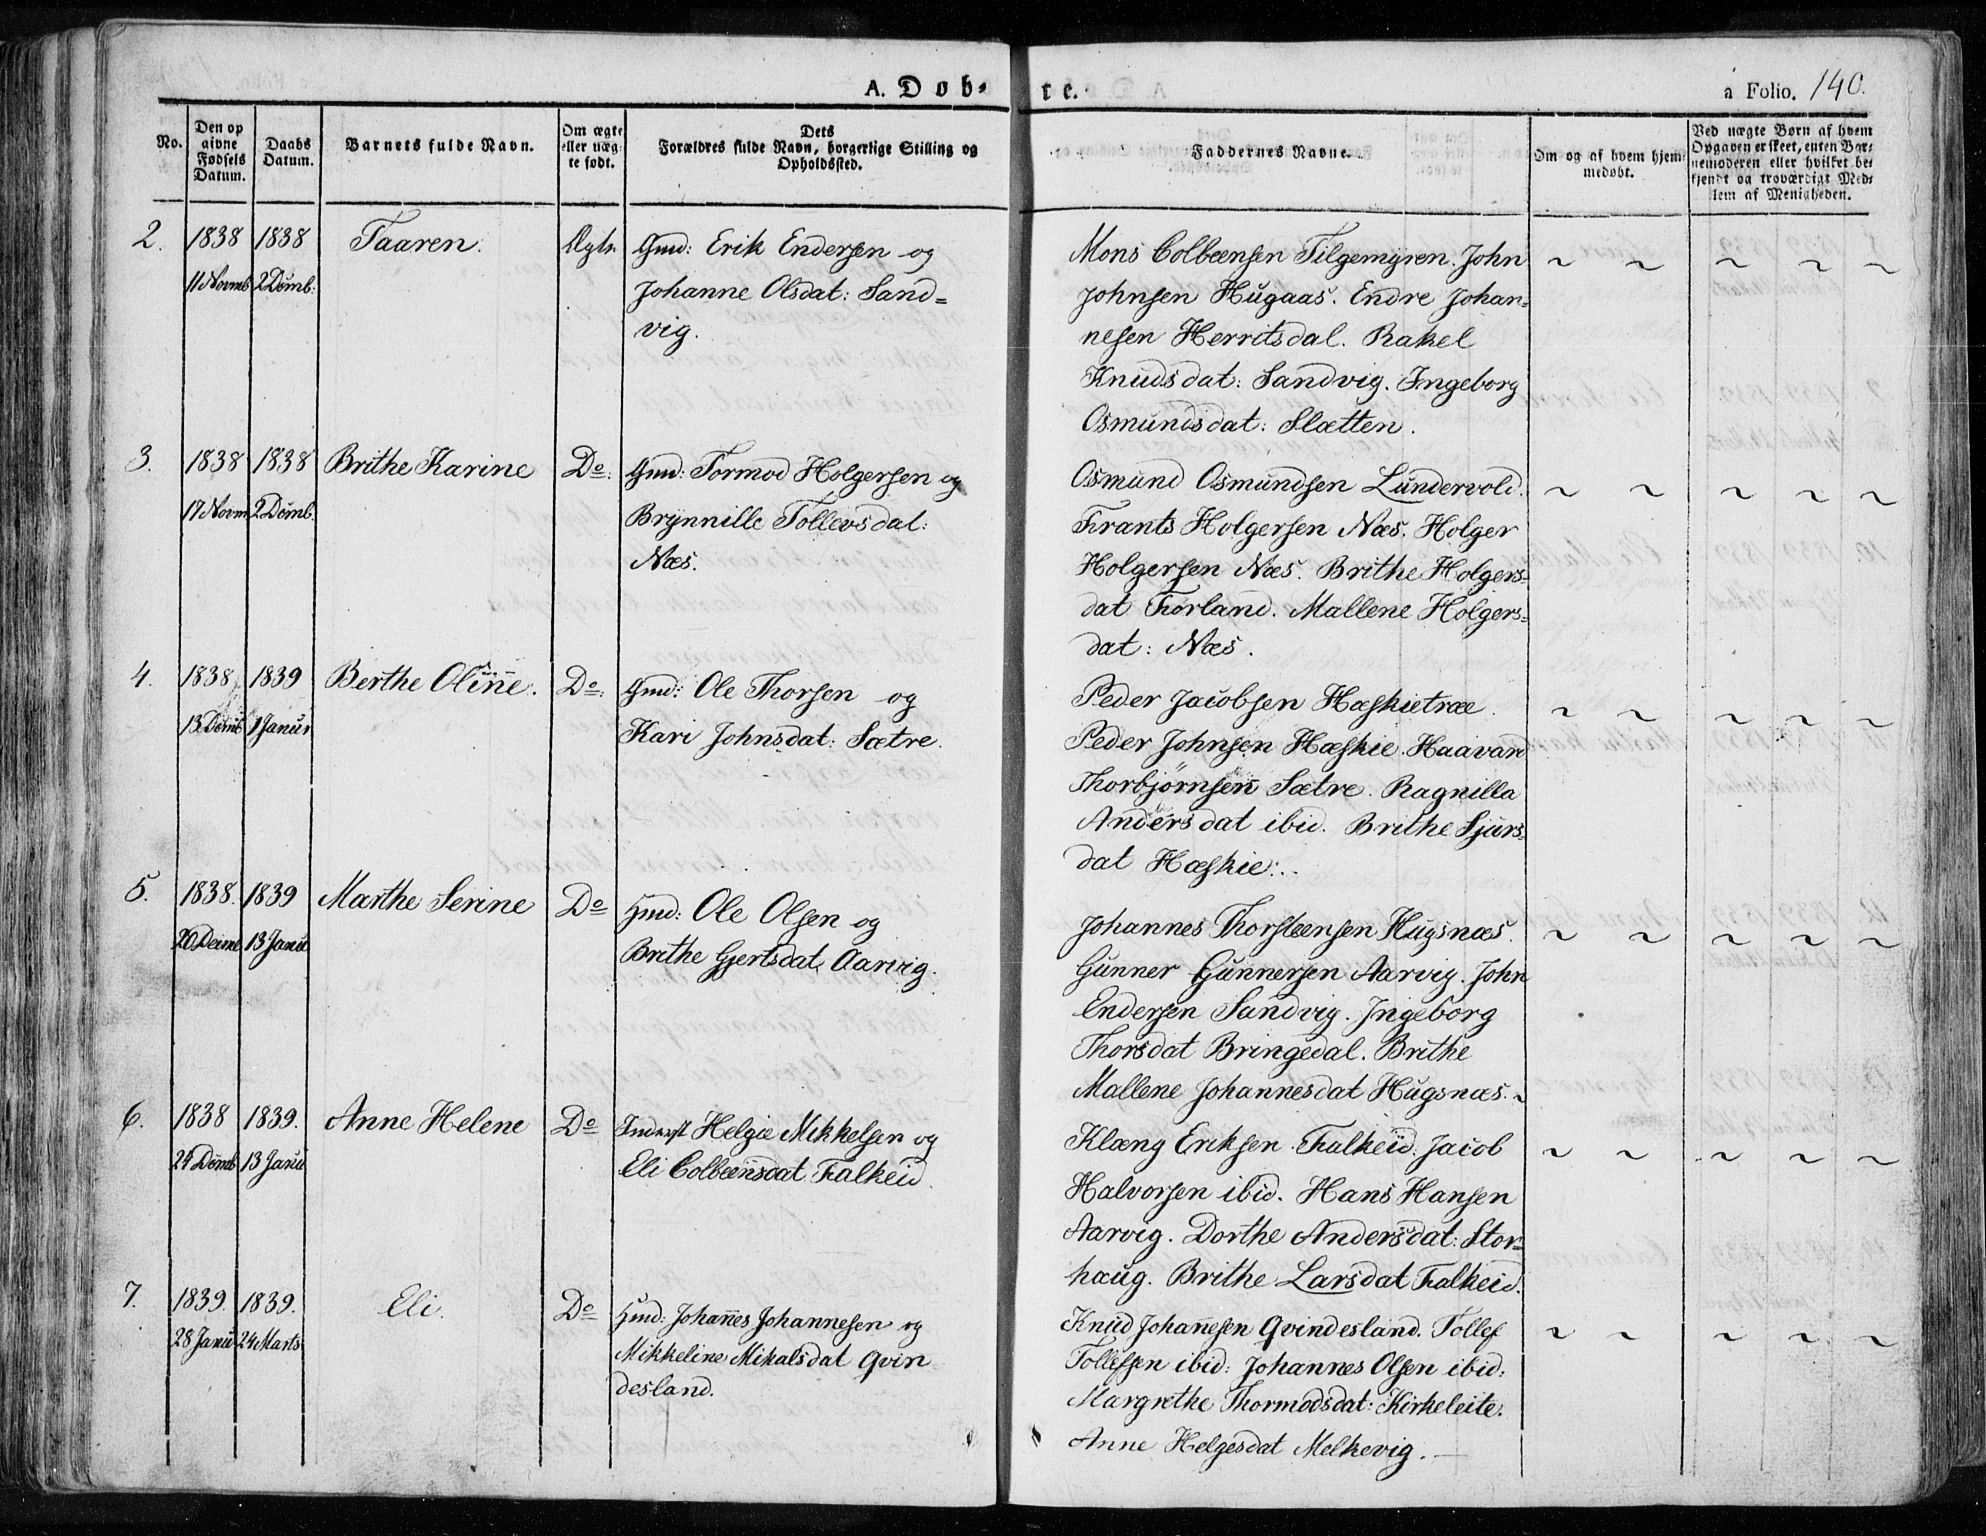 A. Døb-
te.
a Folio. 140.
No.
Den op
givne
Fødsels
Datum.
Daabs
Datum.
Barnets fulde Navn.
Om ægte
eller uæg-
te født.
Dets
Forældres fulde Navn, borgerlige Stilling og
Opholdssted.
Faddernes Navne.
Om og af hvem hjem-
medøbt.
Ved uægte Børn af hvem
Opgaven er skeet, enten Bar-
nemoderen eller hvilket be-
kjendt og troværdigt Med-
lem af Menigheden.
2. 1838 1838 Taaren. Ægte. Gmd: Erik Endersen og
11 Novmb 2 Dcmb: Johanne Olsdat: Sand=
vig.
Mons Colbeensen Tilgemyren. John
Johnsen Hugaas. Endre Johan=
nesen Herritsdal. Rakel
Knudsdat: Sandvig. Ingeborg
Osmundsdat: Slætten.
3. 1838 1838 Brithe Karine Do: Gmd: Tormod Holgersen og
17 Novm 2 Dcmb. Brynnille Tollevsdat:
Næs.
Osmund Osmundsen Lundervold.
Frants Holgersen Næs. Holger
Holgersen Næs. Brithe Holgers=
dat Førland. Mallene Holgers=
dat: Næs.
4. 1838 1839 Berthe Oline. Do: Gmd: Ole Thorsen og
13 Dcmb 1 Janur Kari Johnsdat: Sætre.
Peder Jacobsen Hæskietræe.
Peder Johnsen Hæskie. Haavard
Thorbjørnsen Sætre. Ragnilla
Andersdat ibid. Brithe Sjurs=
dat Hæskie:.
5. 1838. 1839 Marthe Serine Do Gmd: Ole Olsen og
20 Decmb 13 Janu Brithe Gjertsdat. Aarvig.
Johannes Thorsteensen Hugsnæs.
Gunner Gunnersen Aarvig. John
Endersen Sandvig. Ingeborg
Thorsdat Bringedal. Brithe
Mallene Johannesdat Hugsnæs.
6. 1838 1839. Anne Helene Do Inderst Helgie Mikkelsen og
24 Dcmb 13 Janu Eli Colbeensdat Falkeid.
Klæng Eriksen Falkeid. Jacob
Halvorsen ibid. Hans Hansen
Aarvig. Dorthe Andersdat: Stor=
haug. Brithe Larsdat Falkeid.
7. 1839. 1839. Eli. Do Gmd: Johannes Johannesen og
28 Janu 24 Marts Mikkeline Mikalsdat Qvin
desland.
Knud Johanesen Qvindesland. Tollef
Tollefsen ibid: Johannes Olsen ibid:
Margrethe Thormodsdat: Kirkeleite.
Anne Helgesdat Melkevig.